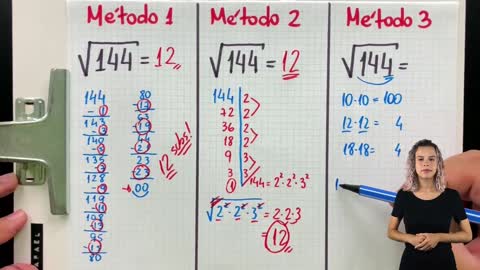 Método 1
√144 = 12
144
- 1
143
- 3
140
- 5
135
- 7
128
- 9
119
- 11
108
- 13
95
- 15
80
80
- 17
63
- 19
44
- 21
23
- 23
00
12
Método 2
√144 = 12
144 2
72 2
36 2
18 2
9 3
3 3
1
144 = 2² · 2² · 3²
√2² · 2² · 3² = 2 · 2 · 3
12
Método 3
√144 =
10 · 10 = 100
12 · 12 = 4
18 · 18 = 4
RAFAEL